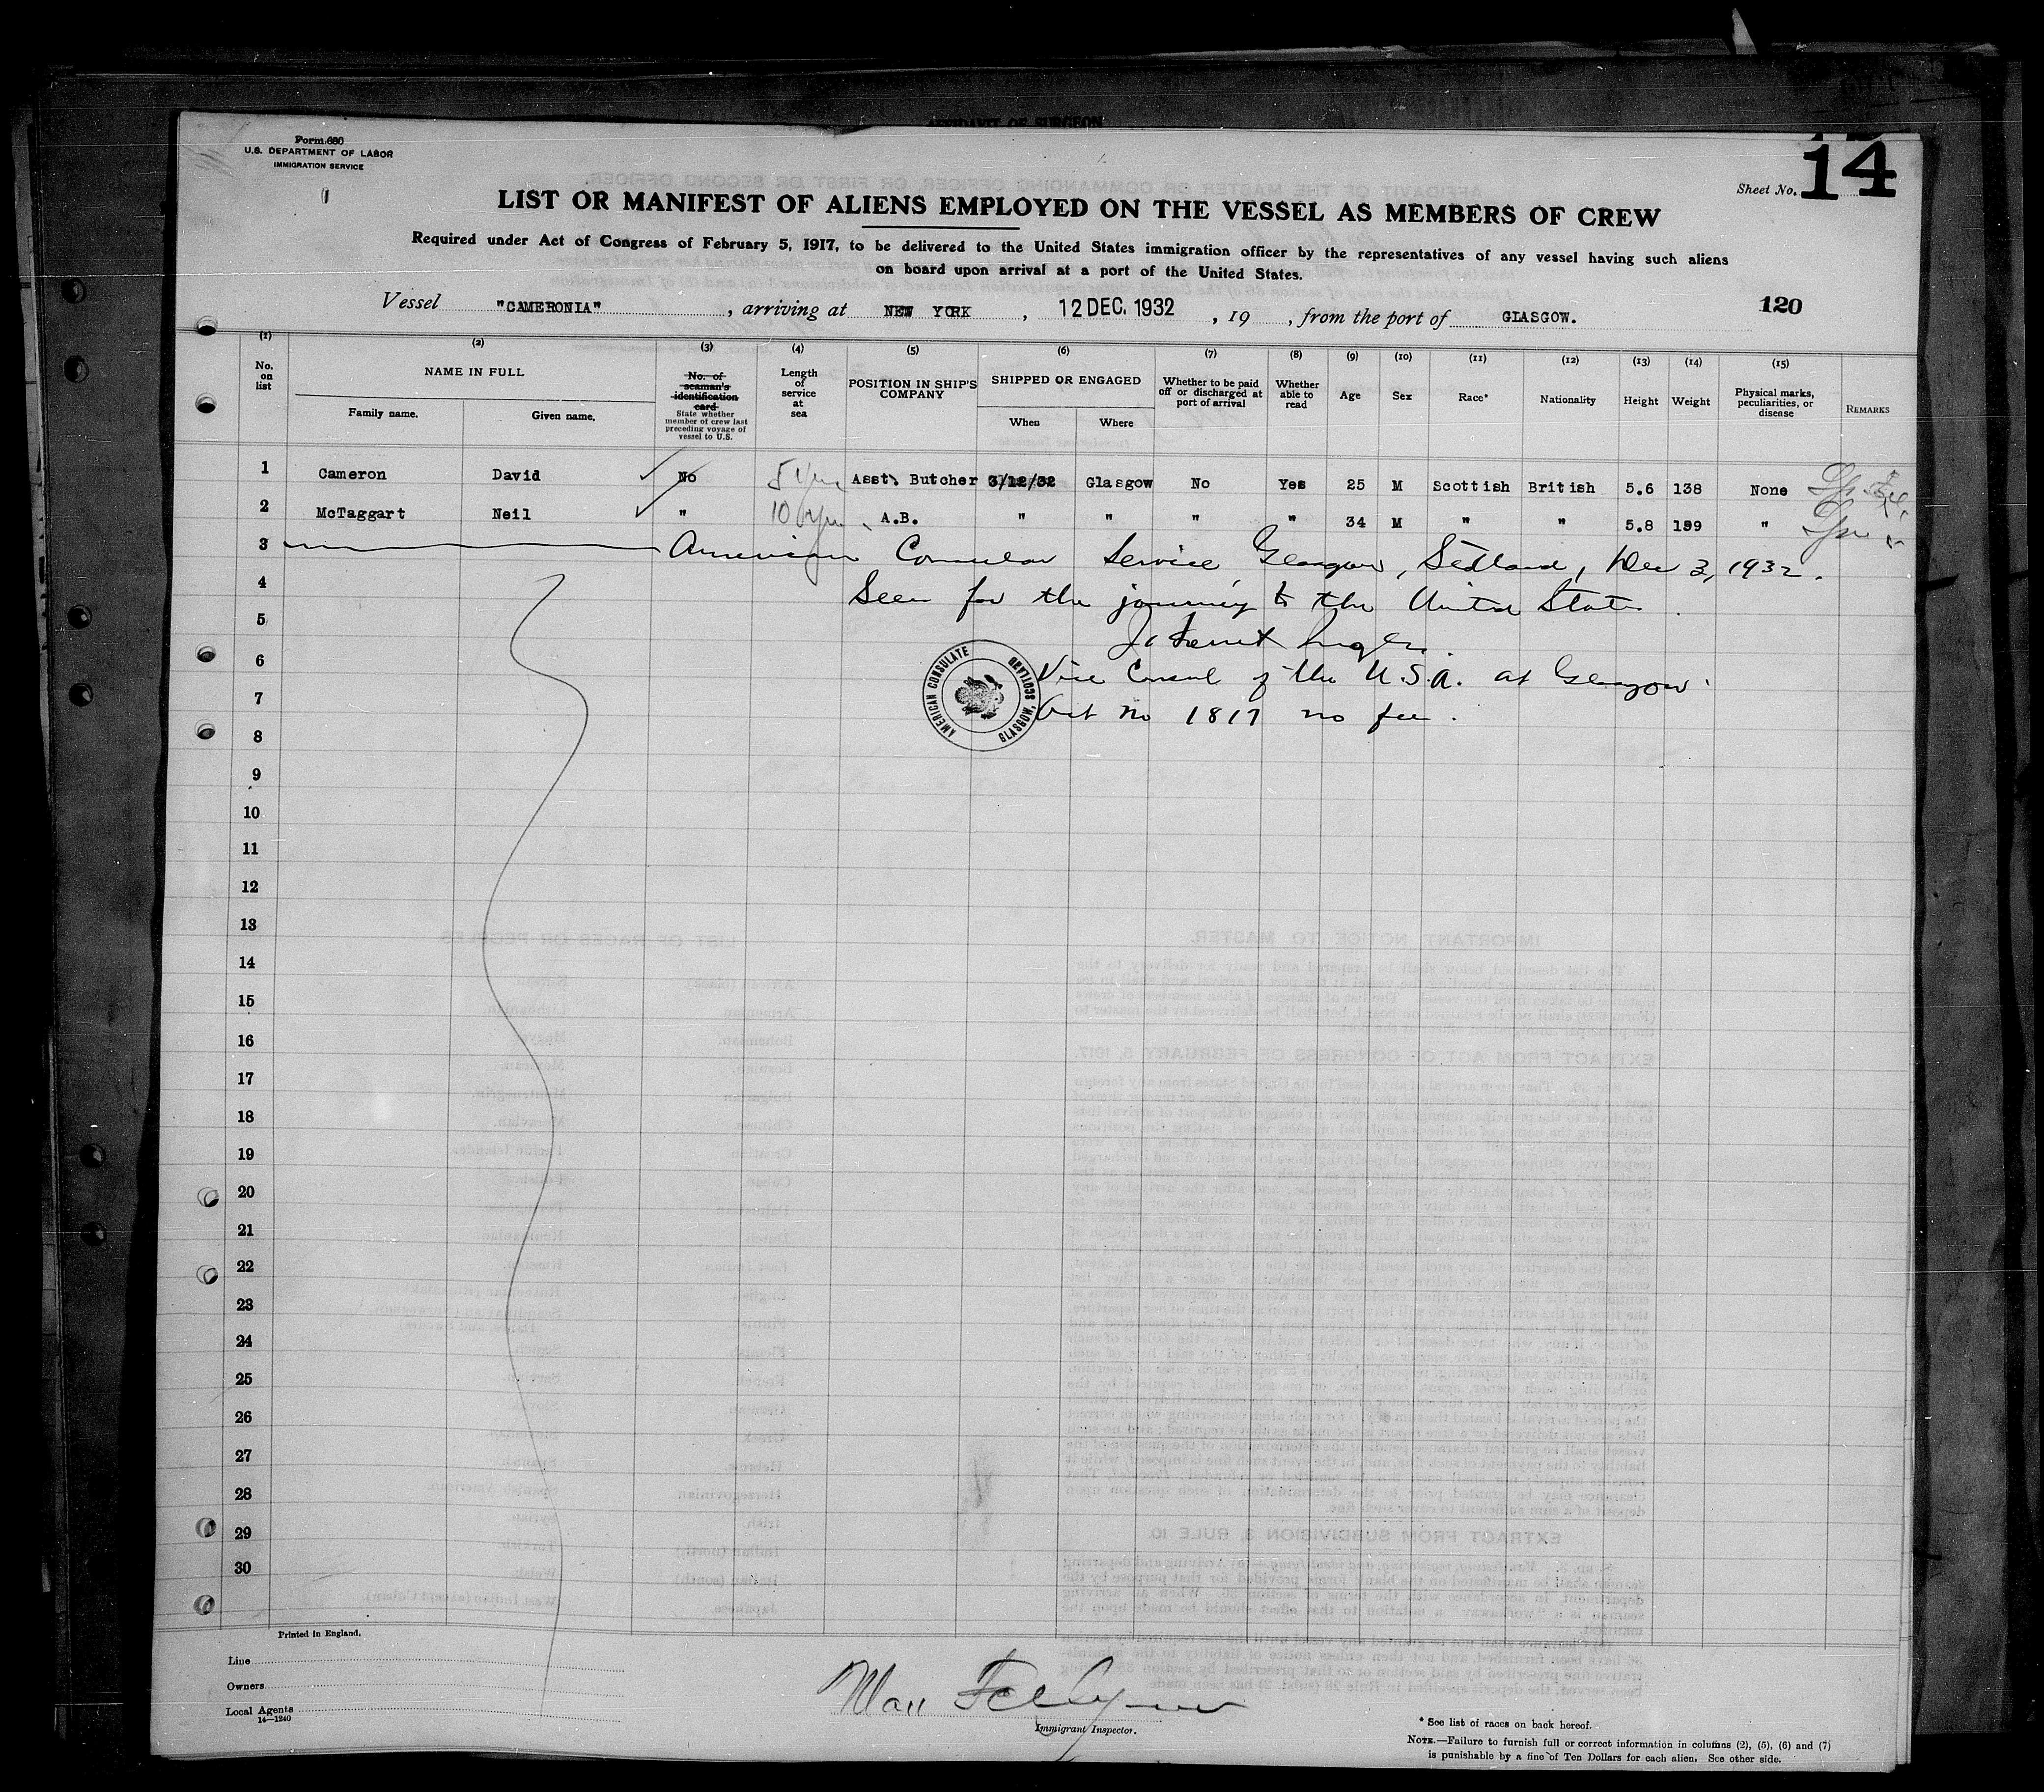 AFFIDAVIT OF SURGEON
Form 680
U.S. DEPARTMENT OF LABOR
IMMIGRATION SERVICE
Sheet No. 14
LIST OR MANIFEST OF ALIENS EMPLOYED ON THE VESSEL AS MEMBERS OF CREW
Required under Act of Congress of February 5, 1917, to be delivered to the United States immigration officer by the representatives of any vessel having such aliens
on board upon arrival at a port of the United States.
Vessel "CAMERONIA", arriving at NEW YORK, 12 DEC. 1932, 19, from the port of GLASGOW.
120
(1) (2) (3) (4) (5) (6) (7) (8) (9) (10) (11) (12) (13) (14) (15)
No. on list
NAME IN FULL
Family name. Given name.
No. of seaman's identification card
State whether member of crew last preceding voyage of vessel to U.S.
Length of service at sea
POSITION IN SHIP'S COMPANY
SHIPPED OR ENGAGED
When Where
Whether to be paid off or discharged at port of arrival
Whether able to read
Age
Sex
Race*
Nationality
Height
Weight
Physical marks, peculiarities, or disease
REMARKS
1 Cameron David No 5 Yrs Asst. Butcher 3/12/32 Glasgow No Yes 25 M Scottish British 5.6 138 None
2 McTaggart Neil " 10 A.B. " " " " 34 M " " 5.8 159 "
3 American Consular Service Glasgow, Scotland, Dec 3, 1932.
4 Seen for the journey to the United States.
5
6 Vice Consul of the U.S.A. at Glasgow.
AMERICAN CONSULATE GLASGOW, SCOTLAND
7 Act No 1817 no fee.
8
9
10
11
12
13
14
15
16
17
18
19
20
21
22
23
24
25
26
27
28
29
30
Printed in England.
Line
Owners
Local Agents
14—1240
Immigrant Inspector.
* See list of races on back hereof.
NOTE.—Failure to furnish full or correct information in columns (2), (5), (6) and (7)
is punishable by a fine of Ten Dollars for each alien. See other side.